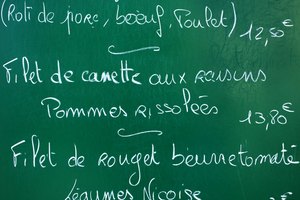 (Roti de porc, bœuf, Poulet) 12,50€
Filet de canette aux raisins
Pommes Rissolées 13,80€
Filet de rouget beurre tomate
Légumes Niçoise